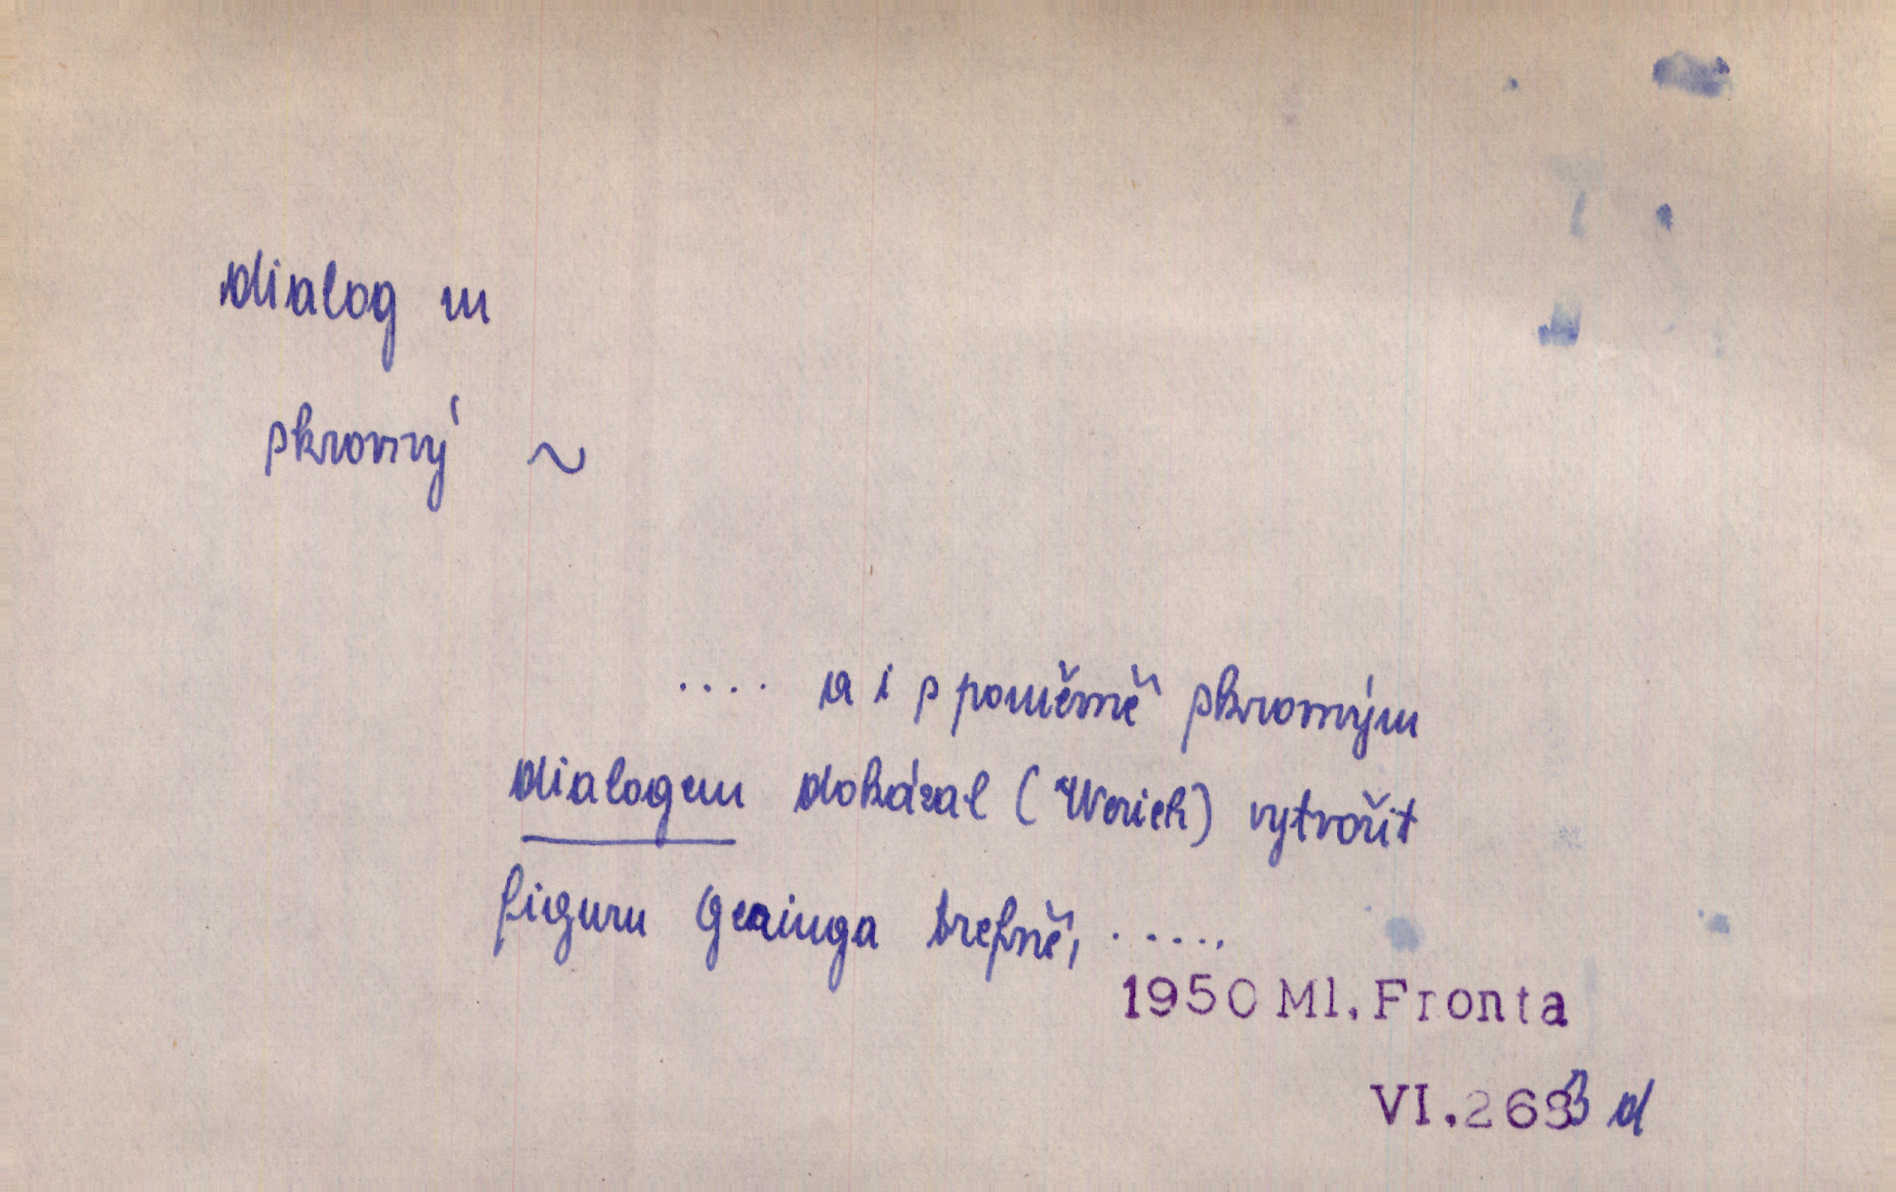 dialog m
skromný ~
.... a i s poměrně skromným
dialogem dokázal (Werich) vytvořit
figuru Geringa trefně, .....
1950 Ml. Fronta
VI. 263 d